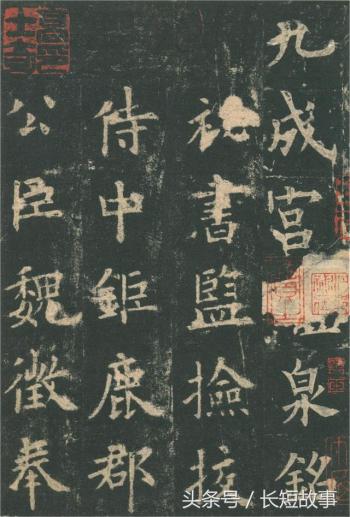 九成宮泉銘
祕書監撿挍
侍中鉅鹿郡
公臣魏徵奉
头条号 / 长短故事